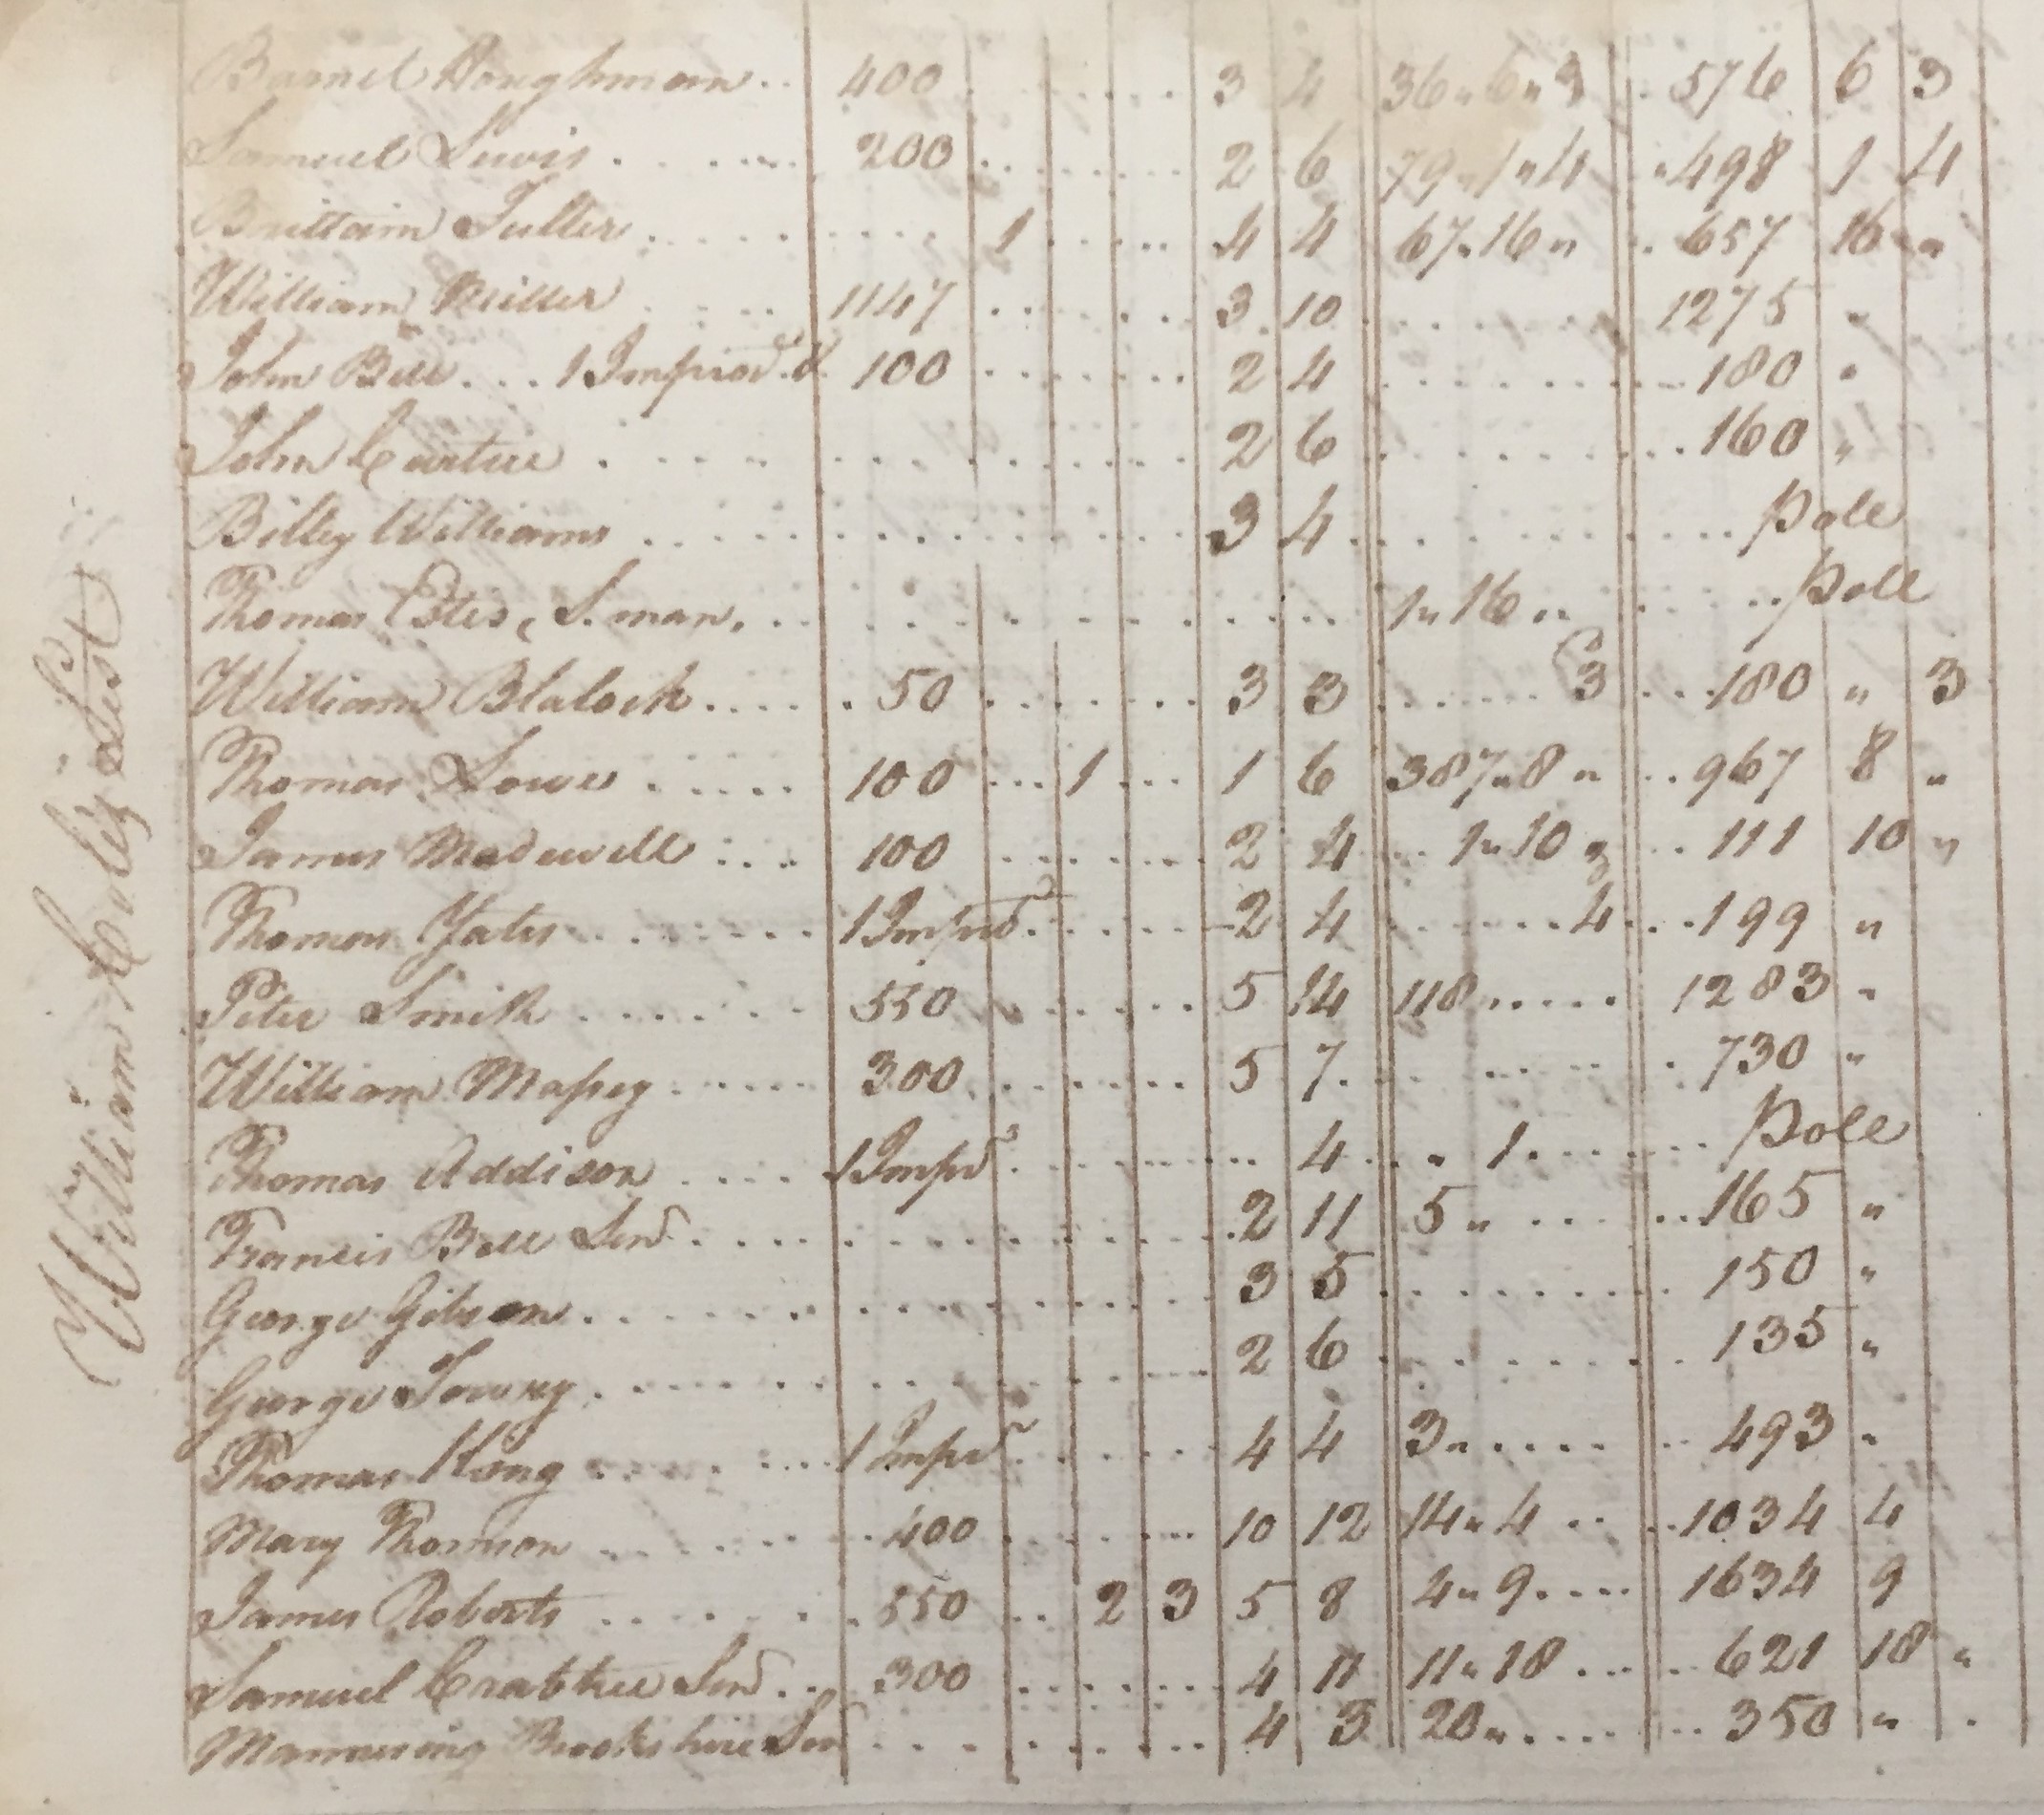 William Culey's List
Barnet Boughman .. 400 3 4 36 " 6 " 3 576 6 3
Samuel Lewis . . . 200 2 6 79 " 1 " 4 " 498 1 4
Brittain Fuller . . . 1 4 4 67 " 16 " 657 16 "
William Miller 1147 3 10 1275 "
John Bell . . . 1 Improvd. & 100 2 4 180 "
John Curtice . 2 6 160 "
Billey Williams . . . 3 4 Pole
Thomas Estes, S. man. . 1 " 16 " Pole
William Blalock . . . 50 3 3 3 180 " 3
Thomas Lowe . . . 100 1 1 6 387 " 8 " 967 8 "
James Madewell . . . 100 2 4 1 " 10 3 111 10 "
Thomas Yates . . . 1 Improd 2 4 4 199 "
Peter Smith . . . 550 5 14 118 " 1283 "
William Massey . . . 300 5 7 730 "
Thomas Addison . . . 1 Impd 4 " 1 Pole
Francis Bell Senr . . . 2 11 5 " 165 "
George Gibson . . . 3 5 150 "
George Towey . . . 2 6 135 "
Thomas King . . . 1 Impd 4 4 3 " 493 "
Mary Thomson . . . 400 10 12 14 " 4 1034 4
James Roberts . . . 550 2 3 5 8 4 " 9 1634 9
Samuel Crabtree Senr . . 300 4 11 11 " 18 621 18 "
Mannering Brookshire Senr . . . 4 3 20 " 350 "